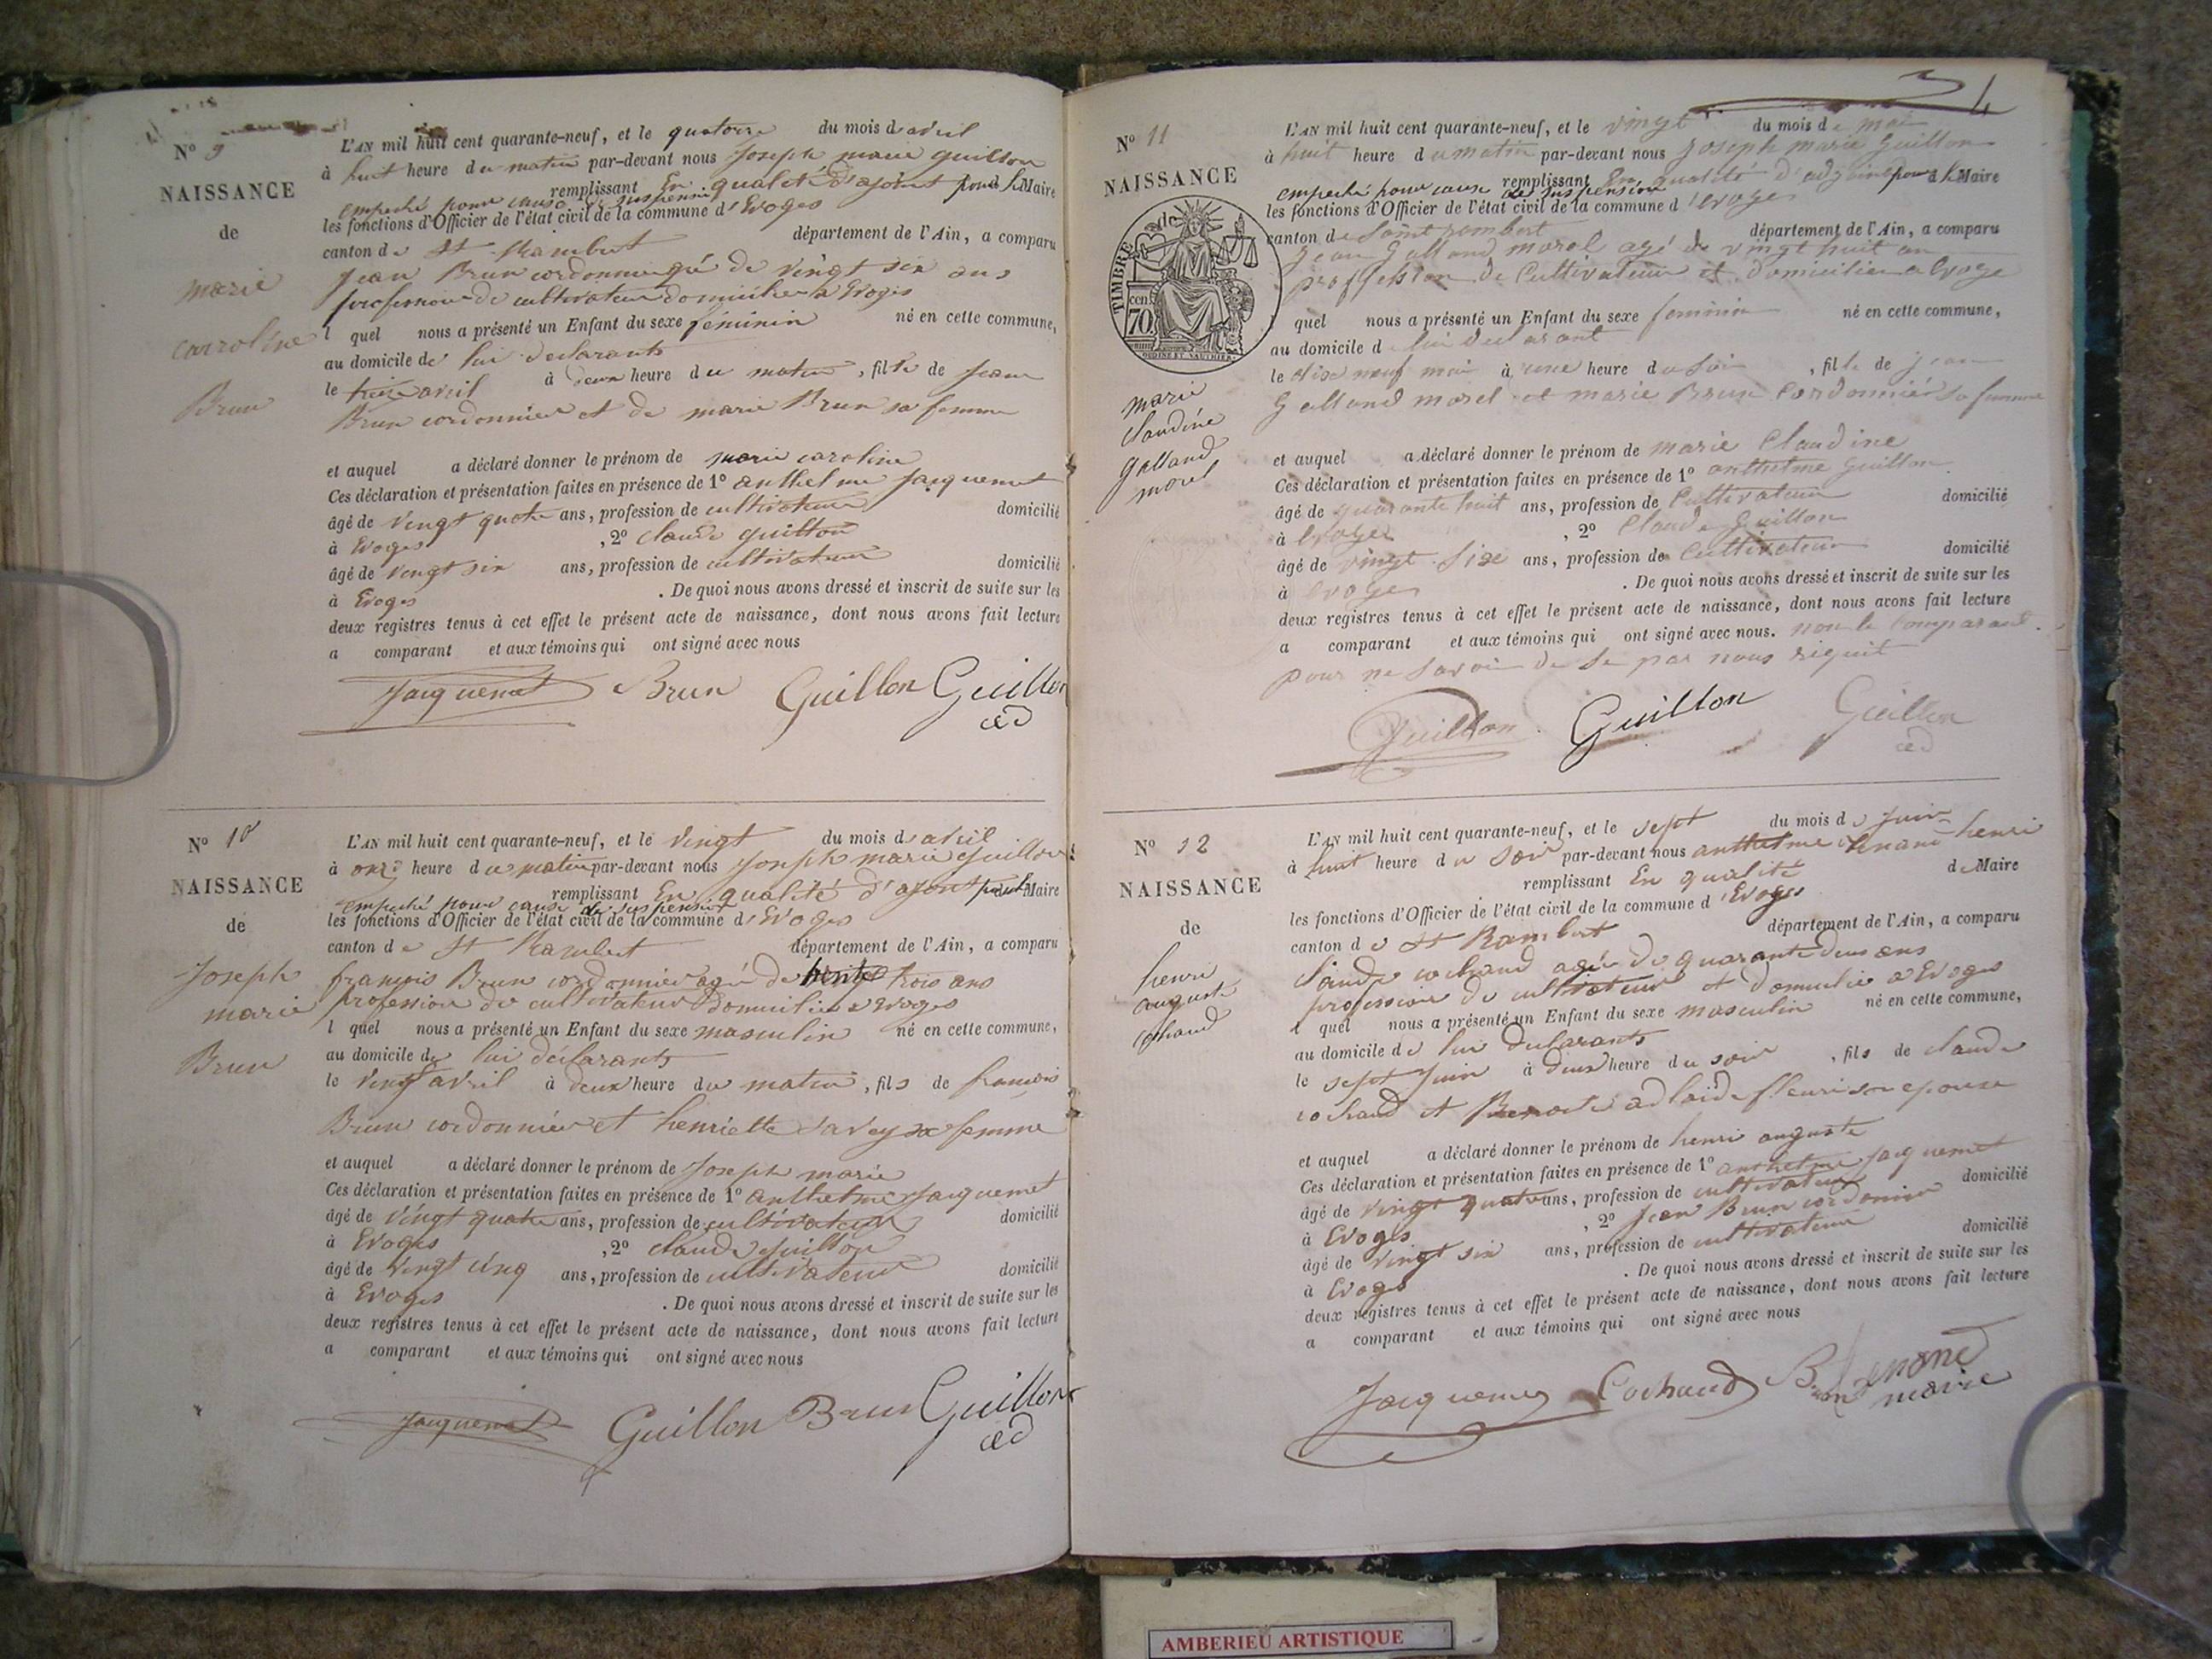 N° 9
NAISSANCE
de
marie
carroline
Brun
L'AN mil huit cent quarante-neuf, et le quatorze du mois d avril
à huit heure du matin par-devant nous Joseph marie guillon
remplissant En qualité d'ajoint pour le Maire
empeché pour cause de suspension
les fonctions d'Officier de l'état civil de la commune d'Evoges
canton de St Rambert département de l'Ain, a comparu
Jean Brun cordonnier agé de vingt six ans
profession de cultivateur domicilier a Evoges
l quel nous a présenté un Enfant du sexe féminin né en cette commune,
au domicile de lui declarants
le treize avril à deux heure du matin, fille de Jean
Brun cordonnier et de marie Brun sa femme
et auquel a déclaré donner le prénom de marie caroline
Ces déclaration et présentation faites en présence de 1° anthelme Jacquemet
âgé de vingt quatre ans, profession de cultivateur domicilié
à Evoges , 2° claude guillon
âgé de vingt six ans, profession de cultivateur domicilié
à Evoges . De quoi nous avons dressé et inscrit de suite sur les
deux registres tenus à cet effet le présent acte de naissance, dont nous avons fait lecture
a comparant et aux témoins qui ont signé avec nous
Jacquemet Brun Guillon Guillon
N° 10
NAISSANCE
de
Joseph
marie
Brun
L'AN mil huit cent quarante-neuf, et le vingt du mois d avril
à onze heure du matin par-devant nous Joseph marie guillon
remplissant En qualité d'ajoint pour le Maire
empeché pour cause de suspension
les fonctions d'Officier de l'état civil de la commune d'Evoges
canton de St Rambert département de l'Ain, a comparu
francois Brun cordonnier agé de trente trois ans
profession de cultivateur domicilier a Evoges
l quel nous a présenté un Enfant du sexe masculin né en cette commune,
au domicile de lui déclarants
le vingt avril à deux heure du matin, fils de francois
Brun cordonnier et henriette savey sa femme
et auquel a déclaré donner le prénom de Joseph marie
Ces déclaration et présentation faites en présence de 1° anthelme Jacquemet
âgé de vingt quatre ans, profession de cultivateur domicilié
à Evoges , 2° claude guillon
âgé de vingt cinq ans, profession de cultivateur domicilié
à Evoges . De quoi nous avons dressé et inscrit de suite sur les
deux registres tenus à cet effet le présent acte de naissance, dont nous avons fait lecture
a comparant et aux témoins qui ont signé avec nous
Jacquemet Guillon Brun Guillon
4
N° 11
NAISSANCE
de
TIMBRE
cen.
70.
OUDINE ET SAUTHIER
marie
claudine
galland
morel
L'AN mil huit cent quarante-neuf, et le vingt du mois de mai
à huit heure du matin par-devant nous Joseph marie Guillon
remplissant En qualité d'adjoint pour le Maire
empeché pour cause de suspension
les fonctions d'Officier de l'état civil de la commune d'Evoges
canton de Saint rambert département de l'Ain, a comparu
Jean Galland morel agé de vingt huit an
proffession de Cultivateur et domicilier a Evoge
quel nous a présenté un Enfant du sexe feminin né en cette commune,
au domicile d lui declarant
le dixe neuf mai à une heure du soir, fille de jean
Galland morel et marie Brun Cordonnier sa femme
et auquel a déclaré donner le prénom de marie Claudine
Ces déclaration et présentation faites en présence de 1° anthelme Guillon
âgé de quarante huit ans, profession de Cultivateur domicilié
à Evoges , 2° Claude Guillon
âgé de vingt Sixe ans, profession de Cultivateur domicilié
à Evoges . De quoi nous avons dressé et inscrit de suite sur les
deux registres tenus à cet effet le présent acte de naissance, dont nous avons fait lecture
a comparant et aux témoins qui ont signé avec nous. non le Comparant
pour ne savoir de se par nous requit
Guillon Guillon Guillon
N° 12
NAISSANCE
de
henri
auguste
cochaud
L'AN mil huit cent quarante-neuf, et le sept du mois de Juin
à huit heure du soir par-devant nous anthelme henri
remplissant En qualité de Maire
les fonctions d'Officier de l'état civil de la commune d'Evoges
canton de St Rambert département de l'Ain, a comparu
Claude cochaud agée de quarante deux ans
profession de cultivateur et domicilie a Evoges
l quel nous a présenté un Enfant du sexe masculin né en cette commune,
au domicile de lui declarants
le sept Juin à deux heure du soir, fils de claude
cochaud et adlaide fleuri son epouse
et auquel a déclaré donner le prénom de henri auguste
Ces déclaration et présentation faites en présence de 1° anthelme Jacquemet
âgé de vingt quatre ans, profession de cultivateur domicilié
à Evoges , 2° Jean Brun cordonnier
âgé de vingt six ans, profession de cultivateur domicilié
à Evoges . De quoi nous avons dressé et inscrit de suite sur les
deux registres tenus à cet effet le présent acte de naissance, dont nous avons fait lecture
a comparant et aux témoins qui ont signé avec nous
Jacquemet Cochaud
maire
AMBERIEU ARTISTIQUE